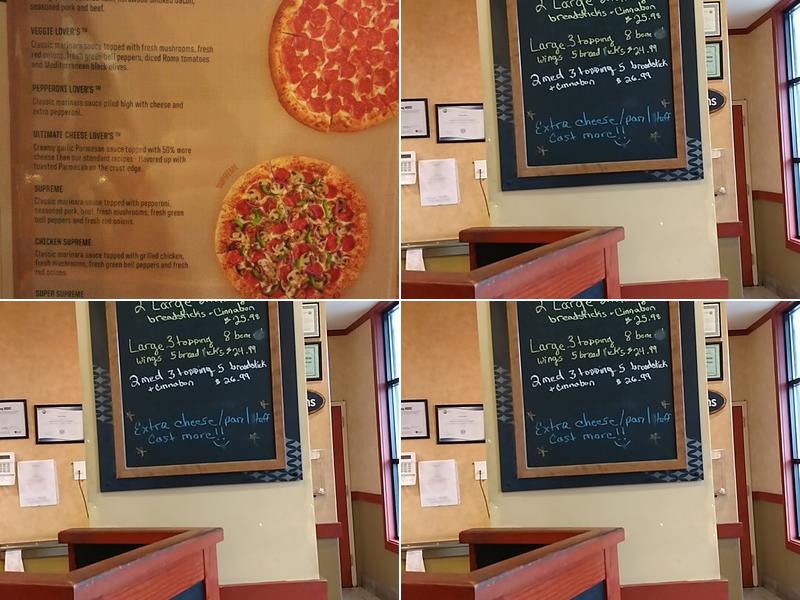 seasoned pork and beef.
VEGGIE LOVER'S™
Classic marinara sauce topped with fresh mushrooms, fresh
red onions, fresh green bell peppers, diced Roma tomatoes
and Mediterranean black olives.
PEPPERONI LOVER'S™
Classic marinara sauce piled high with cheese and
extra pepperoni.
ULTIMATE CHEESE LOVER'S™
Creamy garlic Parmesan sauce topped with 50% more
cheese than our standard recipes - flavored up with
toasted Parmesan on the crust edge.
SUPREME
Classic marinara sauce topped with pepperoni,
seasoned pork, beef, fresh mushrooms, fresh green
bell peppers and fresh red onions.
CHICKEN SUPREME
Classic marinara sauce topped with grilled chicken,
fresh mushrooms, fresh green bell peppers and fresh
red onions.
SUPER SUPREME
breadsticks + Cinnabon
$25.98
Large 3 topping 8 bone
wings 5 bread stick's $24.99
2 med 3 topping 5 breadstick
+ Cinnabon $26.99
Extra cheese/pan/stuff
Cost more!!
2 Large
breadsticks + Cinnabon
$25.98
Large 3 topping 8 bone
wings 5 bread stick's $24.99
2 med 3 topping 5 breadstick
+ Cinnabon $26.99
Extra cheese/pan/stuff
Cost more!!
2 Large
breadsticks + Cinnabon
$25.98
Large 3 topping 8 bone
wings 5 bread stick's $24.99
2 med 3 topping 5 breadstick
+ Cinnabon $26.99
Extra cheese/pan/stuff
Cost more!!